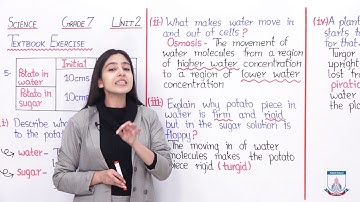 Science Grade 7 Unit 2
Textbook Exercise
5-
Initial
Potato in water
10cms
Potato in sugar
10cms
(i) Describe wh
to the pota
→ water -
→ sugar -
(ii) What makes water move in
and out of cells?
Osmosis - The movement of
water molecules from a region
of higher water concentration
to a region of lower water
concentration
(iii) Explain why potato piece in
water is firm and rigid
but in the sugar solution is
floppy?
The moving in of water
molecules makes the potato
piece rigid (turgid)
(iv) A plant
starts t
for that
Turgor
upright
lost from
piratio
water
the pla